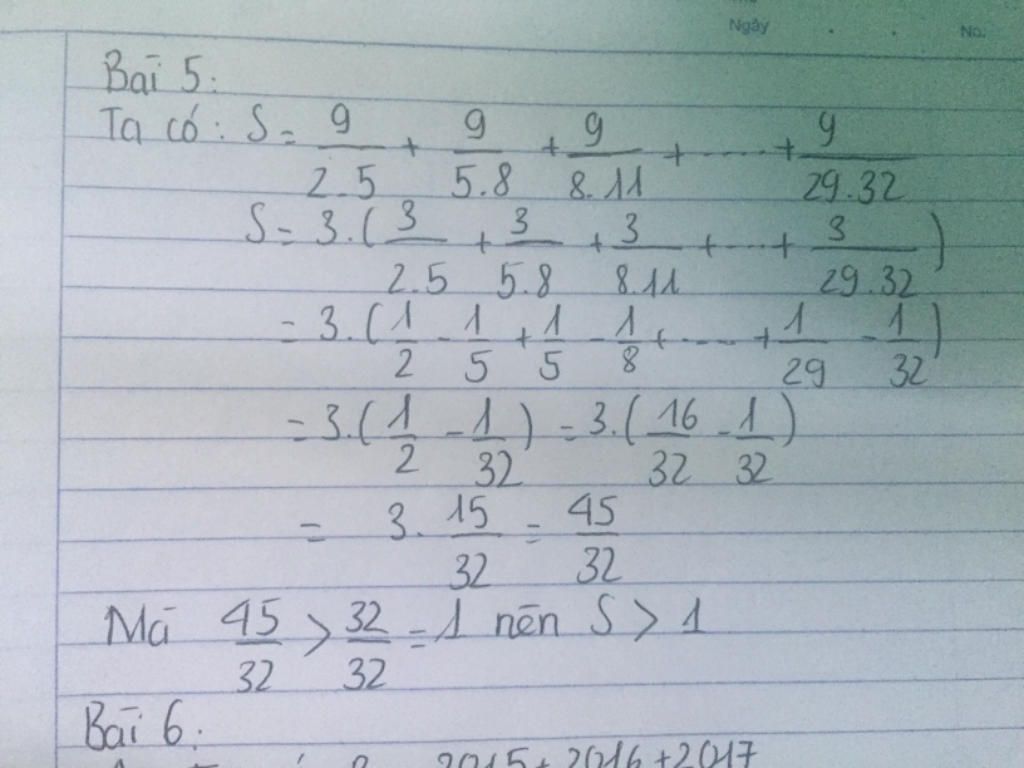 Ngày No.
Bài 5:
Ta có: S = 9/2.5 + 9/5.8 + 9/8.11 + ..... + 9/29.32
S = 3.(3/2.5 + 3/5.8 + 3/8.11 + ..... + 3/29.32)
= 3.(1/2 - 1/5 + 1/5 - 1/8 + ..... + 1/29 - 1/32)
= 3.(1/2 - 1/32) = 3.(16/32 - 1/32)
= 3. 15/32 = 45/32
Mà 45/32 > 32/32 = 1 nên S > 1
Bài 6:
2015 + 2016 + 2017